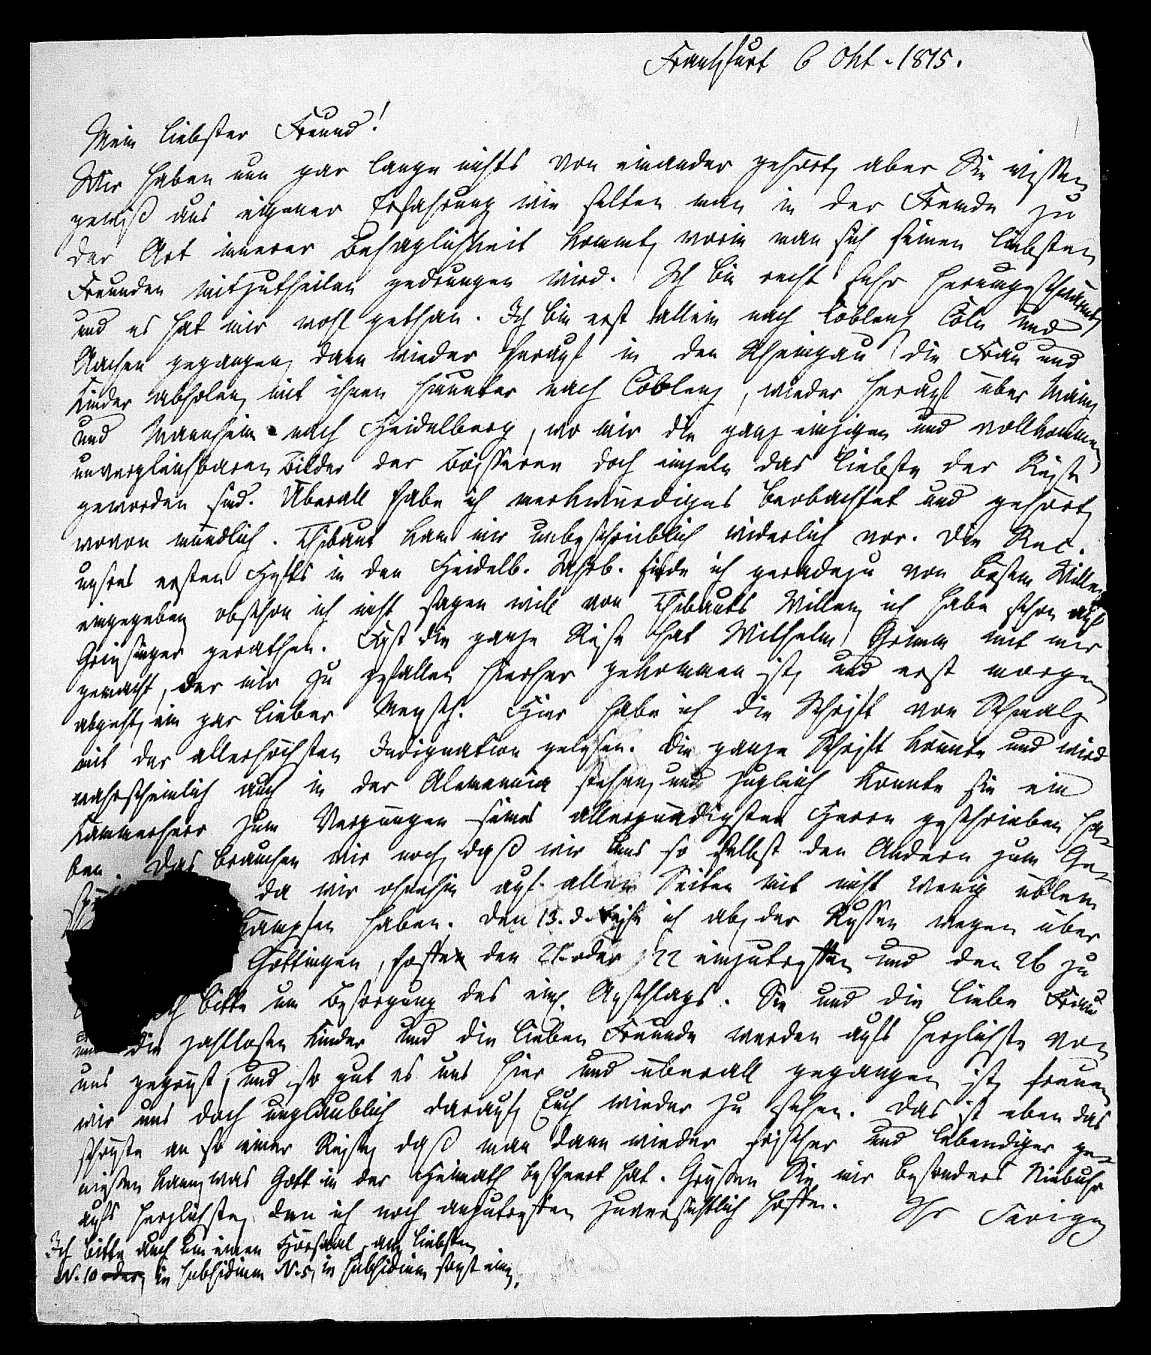 Frankfurt 6 Okt. 1815.
Mein liebster Freund!
Wir haben nun gar lange nichts von einander gehört, aber Sie wissen
gewiß aus eigener Erfahrung wie selten man in der Fremde zu
der Art innerer Behaglichkeit kommt, worin man sich seinen liebsten
Freunden mitzutheilen gedrungen wird. Ich bin recht sehr herumgeschwärmt,
und es hat mir wohl gethan. Ich bin erst allein nach Coblenz, Cöln und
Aachen gegangen, dann wieder herauf in den Rheingau die Frau und
Kinder abholen, mit ihnen hinunter nach Coblenz, wieder herauf über Mainz
und Mannheim nach Heidelberg, wo mir die ganz einzigen und vollkommen
unvergleichbaren Bilder der Boisseren doch einzeln das Liebste der Reise
geworden sind. Überall habe ich merkwürdiges beobachtet und gehört,
wovon mündlich. Thibaut kam mir unbeschreiblich widerlich vor. Die Rec.
unsres ersten Hefts in den Heidelb. Jahrb. finde ich geradezu von bösem Willen
eingegeben, obschon ich nicht sagen will von Thibauts Willen, ich habe schon auf
gerathen. Fast die ganze Reise hat Wilhelm Grimm mit mir
gemacht, der mir zu gefallen hierher gekommen ist, und erst morgen
abgeht, ein gar lieber Mensch. Hier habe ich die Schrift von Schmalz
mit der allerhöchsten Indignation gelesen. Die ganze Schrift könnte und wird
wahrscheinlich auch in der Alemannia stehen, und zugleich könnte sie ein
Kammerherr zum Vergnügen seines allergnädigsten Herrn geschrieben ha-
ben. Das brauchen wir noch, daß wir uns so selbst den Andern zum Ge-
da wir ohnehin auf allen Seiten mit nicht wenig üblem
kämpfen haben. Den 13. d. reise ich ab, der Russen wegen über
Göttingen, hoffe den 21 oder 22 einzutreffen und den 26 zu
bitte um Besorgung des Anschlags. Sie und die liebe Frau
und die zahllosen Kinder und die lieben Freunde werden aufs herzlichste von
uns gegrüßt, und so gut es uns hier und überall gegangen ist, freuen
wir uns doch unglaublich darauf, Euch wieder zu sehen. Das ist eben das
schönste an so einer Reise, daß man dann wieder frischer und lebendiger ge-
nießen kann, was Gott in der Heimath bescheert hat. Grüßen Sie mir besonders Niebuhr
aufs herzlichste, den ich noch anzutreffen zuversichtlich hoffe. Ihr Savigny
Ich bitte auch um einen Hörsaal, am liebsten
N. 10 oder, in subsidium N. 5, in subsidium sonst ein.